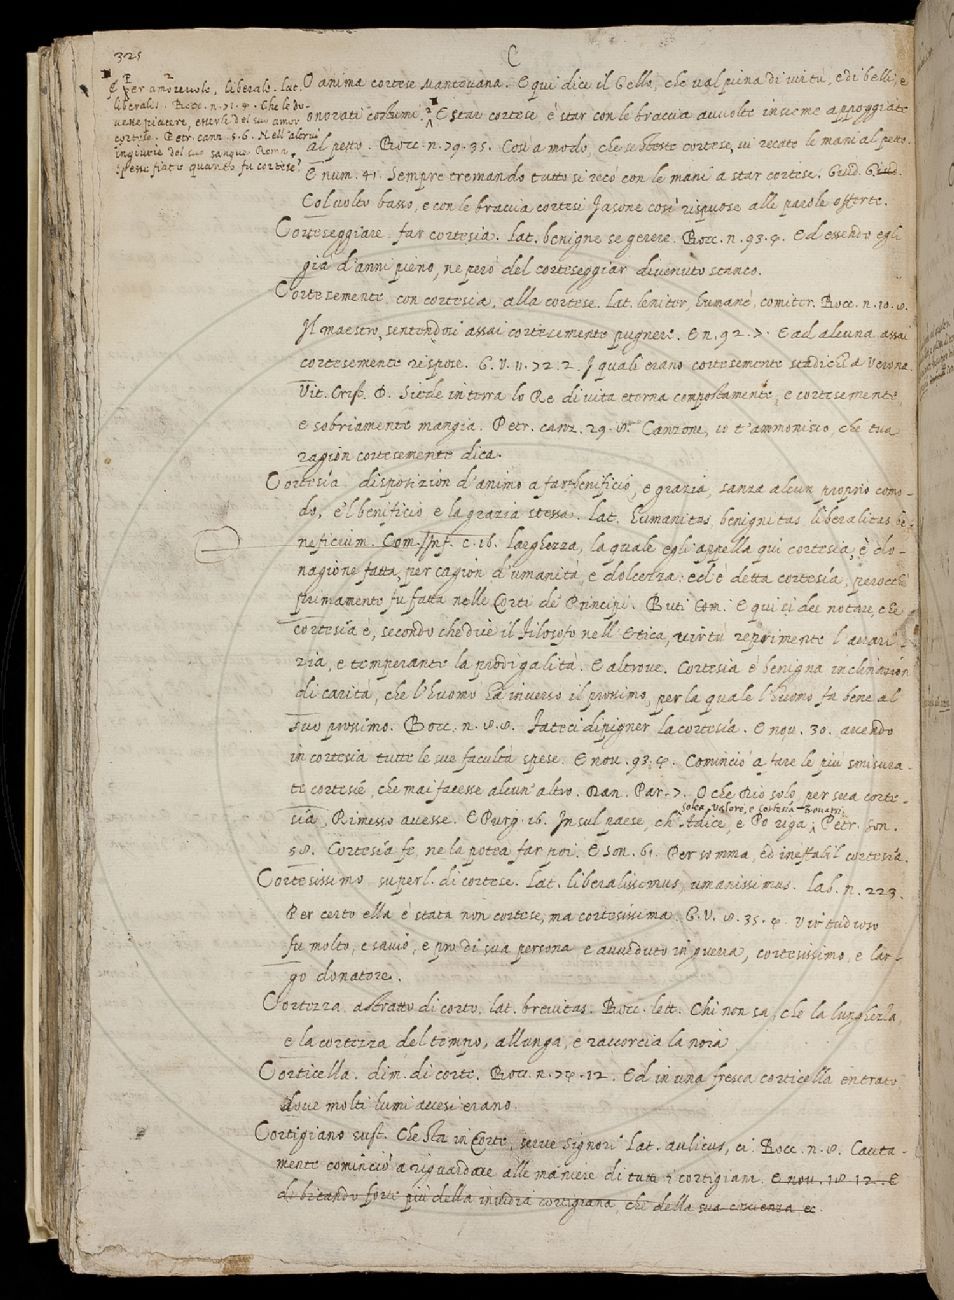 325
C
Per amorevole, liberale. lat.
liberalis. Bocc. n.
cortese. Petr. canz. 5. 6. Nell'altrui
ingiurie del suo sangue Roma
Spesse fiate quanto fu cortese?
O anima cortese Mantovana. E qui dice il Gello, che val piena di virtù, e di belli, e
onorati costumi. E star cortese, è star con le braccia avvolte insieme appoggiate
al petto. Bocc. n. 79. 35. Così a modo, che se steste cortese, vi recate le mani al petto.
E num. 41. Sempre tremando tutto si recò con le mani a star cortese.
Col volto basso, e con le braccia cortesi Jasone così rispuose alle parole offerte.
Corteseggiare. far cortesia. Lat. benigne se gerere. Bocc. n. 93. 4. Ed essendo egli
già d'anni pieno, ne però del corteseggiar divenuto stanco.
Cortesemente, con cortesia, alla cortese. Lat. leniter, humanè, comiter. Bocc. n. 10. 8.
Il maestro, sentendosi assai cortesemente pugnere. E n. 92. 7. E ad alcuna assai
cortesemente rispose. G. V. 11. 72. 2 I quali erano cortesemente stadichi a Verona
Vit. Crist. D. Siede in terra lo Re di vita eterna compostamente, e cortesemente,
e sobriamente mangia. Petr. canz. 29. 8. Canzone, io t'ammonisco, che tua
ragion cortesemente dica.
Cortesia. disposizion d'animo a far benificio, e grazia, sanza alcun proprio como-
do, e'l benificio e la grazia stessa. Lat. humanitas, benignitas liberalitas be-
neficium. Com. Inf. c. 16. Larghezza, la quale egli appella qui cortesia, è do-
nagione fatta, per cagion d'umanità, e dolcezza: ed è detta cortesia, perocchè
primamente fu fatta nelle Corti de' Principi. Buti Com. E qui si dee notare, che
cortesia è, secondo che dice il Filosofo nell'Etica, virtù reprimente l'avari-
zia, e temperante la prodigalità. E altrove. Cortesia è benigna inclinazion
di carità, che l'huomo ha inverso il prossimo, per la quale l'huomo fa bene al
suo prossimo. Bocc. n. 8. 8. Fateci dipigner la cortesia. E nov. 30. avendo
in cortesia tutte le sue facultà spese. E nov. 93. 4. Cominciò a fare le più smisura-
te cortesie, che mai facesse alcun'altro. Dan. Par. 7. O che Dio solo, per sua corte-
solea valore, e cortesia trovarsi
sia, Dimesso avesse. E Purg. 16. In sul paese, ch'Adice, e Po riga; Petr. son.
58. Cortesia fe, ne la potea far poi. E son. 61. Per somma, ed ineffabil cortesia.
Cortesissimo superl. di cortese. Lat. liberalissimus, umanissimus. Lab. n. 223.
Per certo ella è stata non cortese, ma cortesissima. G. V. 8. 35. 4. Virtudioso
fu molto, e savio, e pro di sua persona e avveduto in guerra, cortesissimo, e lar-
go donatore.
Cortezza astratto di corto. lat. brevitas. Bocc. lett. Chi non sa, che la lunghezza,
e la cortezza del tempo, allunga, e raccorcia la noia
Corticella. dim. di corte. Bocc. n. 74. 12. Ed in una fresca corticella entrato
dove molti lumi accesi erano.
Cortigiano sust. Che sta in Corte, serve signori Lat. aulicus, ci Bocc. n. 8. Cauta-
mente cominciò a riguardare alle maniere di tutti i cortigiani. E nov. 18 12. E
dubitando forte più della invidia cortigiana, che della sua coscienza ec.